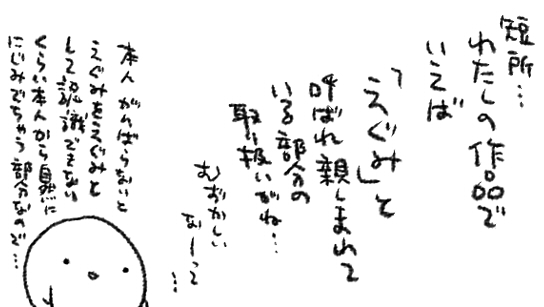 短所…
わたしの作品で
いえば
「えぐみ」と
呼ばれ親しまれて
いる部分の
取り扱いがね…
むずかしい
なーって
…
本人がんばらないと
えぐみをえぐみと
して認識できない
くらい本人から自然に
にじみでちゃう部分なので…